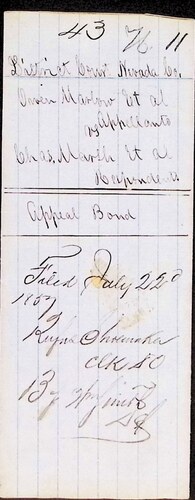 43 76 11
District Court Nevada Co.
Owen Marlow Et al
Appellants
vs
Chas. Marsh Et al
Respondents
Appeal Bond
Filed July 22d
1857
Rufus Shoemaker
Clk SC
By